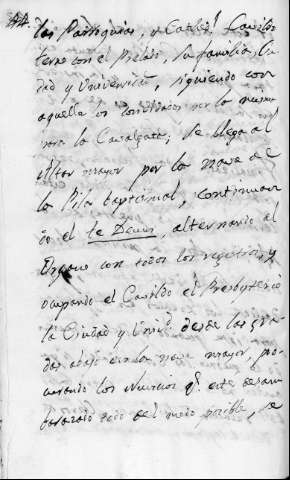 44.
las Parroquias, y Catedl. Cavildo
terno con el Prelado, su familia, Ciu
dad y Universidd., siguiendo con
aquella los combidados por la misma
la Cavalgata; Se llega al
Altar mayor por la nave de
la Pila baptismal, continuan
do el te Deum, alternando el
Organo con todos los registros, y
ocupando el Cavildo el Presbyterio
la Ciudad y Univd. desde las gra
das abajo en la nave mayor, pro
curando los Nuncios qe. este desem
barazado todo del modo posible, se